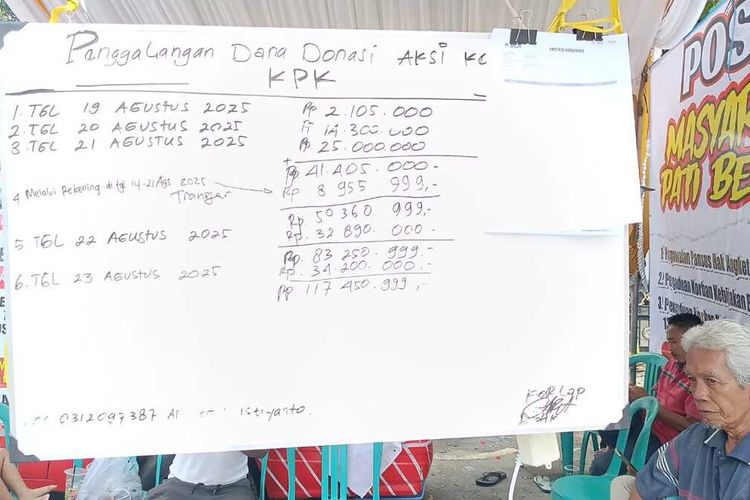 Panggalangan Dana Donasi AKSI
KPK
1. TGL 19 AGUSTUS 2025 Rp 2.105.000
2. TGL 20 AGUSTUS 2025 Rp 14.300.000
3. TGL 21 AGUSTUS 2025 Rp 25.000.000
+
Rp 41.405.000-
4 Melalui Rekening di tgl 14-21 Ags 2025 Rp 8 955 999,-
Transfer
Rp 50 360 999,-
5 TGL 22 AGUSTUS 2025 Rp. 32 890. 000 -
Rp. 83 250.999.-
6. TGL 23 AGUSTUS 2025 Rp. 34.200.000.-
Rp 117 450.999,-
0312097387 Istiyanto.
KORLAP
POS
MASYAR
PATI BE
1. Pengawalan Pansus Hak Angket
2. Pengaduan Korban Kebijakan
3.